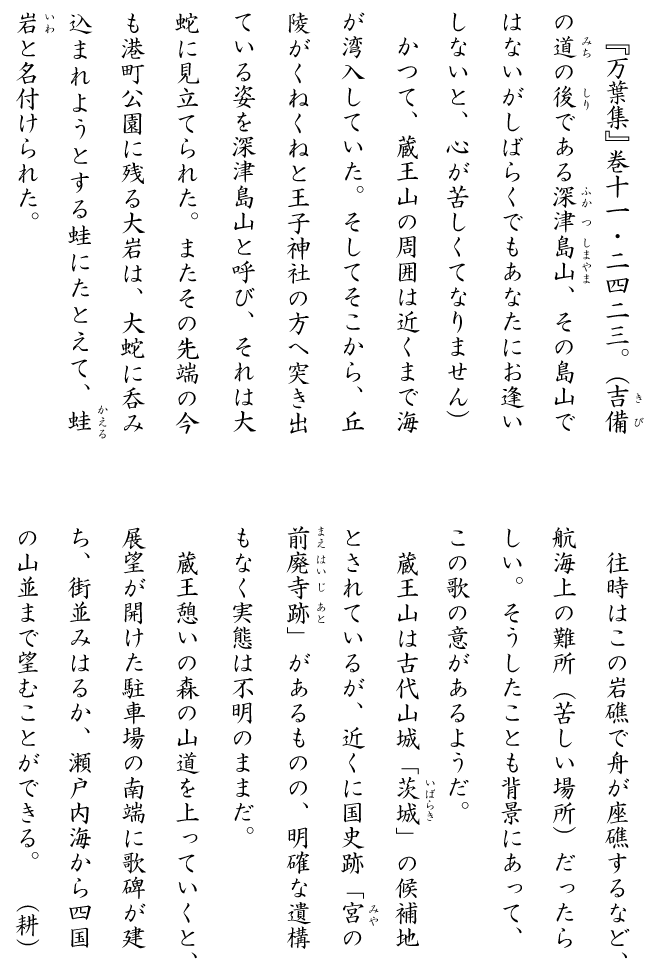 『万葉集』巻十一・二四二三。（吉備
の道の後である深津島山、その島山で
はないがしばらくでもあなたにお逢い
しないと、心が苦しくてなりません）
かつて、蔵王山の周囲は近くまで海
が湾入していた。そしてそこから、丘
陵がくねくねと王子神社の方へ突き出
ている姿を深津島山と呼び、それは大
蛇に見立てられた。またその先端の今
も港町公園に残る大岩は、大蛇に呑み
込まれようとする蛙にたとえて、蛙
岩と名付けられた。
往時はこの岩礁で舟が座礁するなど、
航海上の難所（苦しい場所）だったら
しい。そうしたことも背景にあって、
この歌の意があるようだ。
蔵王山は古代山城「茨城」の候補地
とされているが、近くに国史跡「宮の
前廃寺跡」があるものの、明確な遺構
もなく実態は不明のままだ。
蔵王憩いの森の山道を上っていくと、
展望が開けた駐車場の南端に歌碑が建
ち、街並みはるか、瀬戸内海から四国
の山並まで望むことができる。（耕）